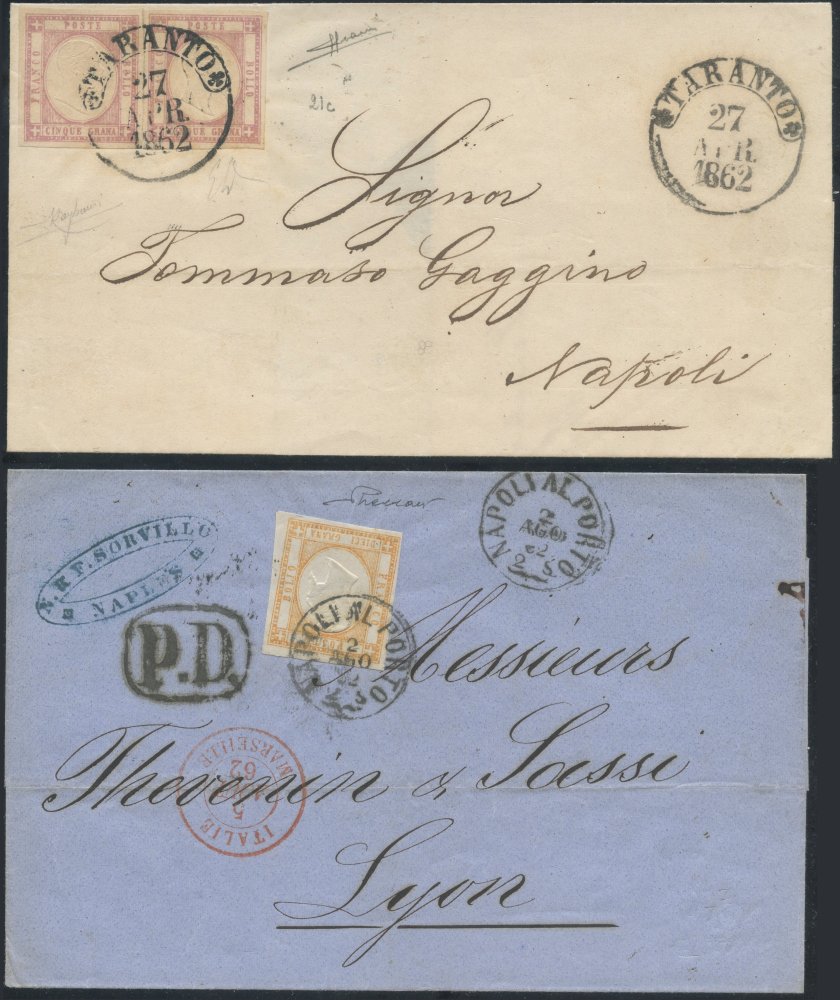 POSTE POSTE
FRANCO BOLLO
CINQUE GRANA CINQUE GRANA
TARANTO
27
APR.
1862
21c
TARANTO
27
APR.
1862
Signor
Tommaso Gaggino
Napoli
& F. SORVILLO
NAPLES
P.D.
DIECI GRANA
BOLLO
NAPOLI AL PORTO
2
AGO
62
2 S
NAPOLI AL PORTO
2
AGO
62
Messieurs
Thevenin & Sassi
Lyon
ITALIE
5
62
MARSEILLE